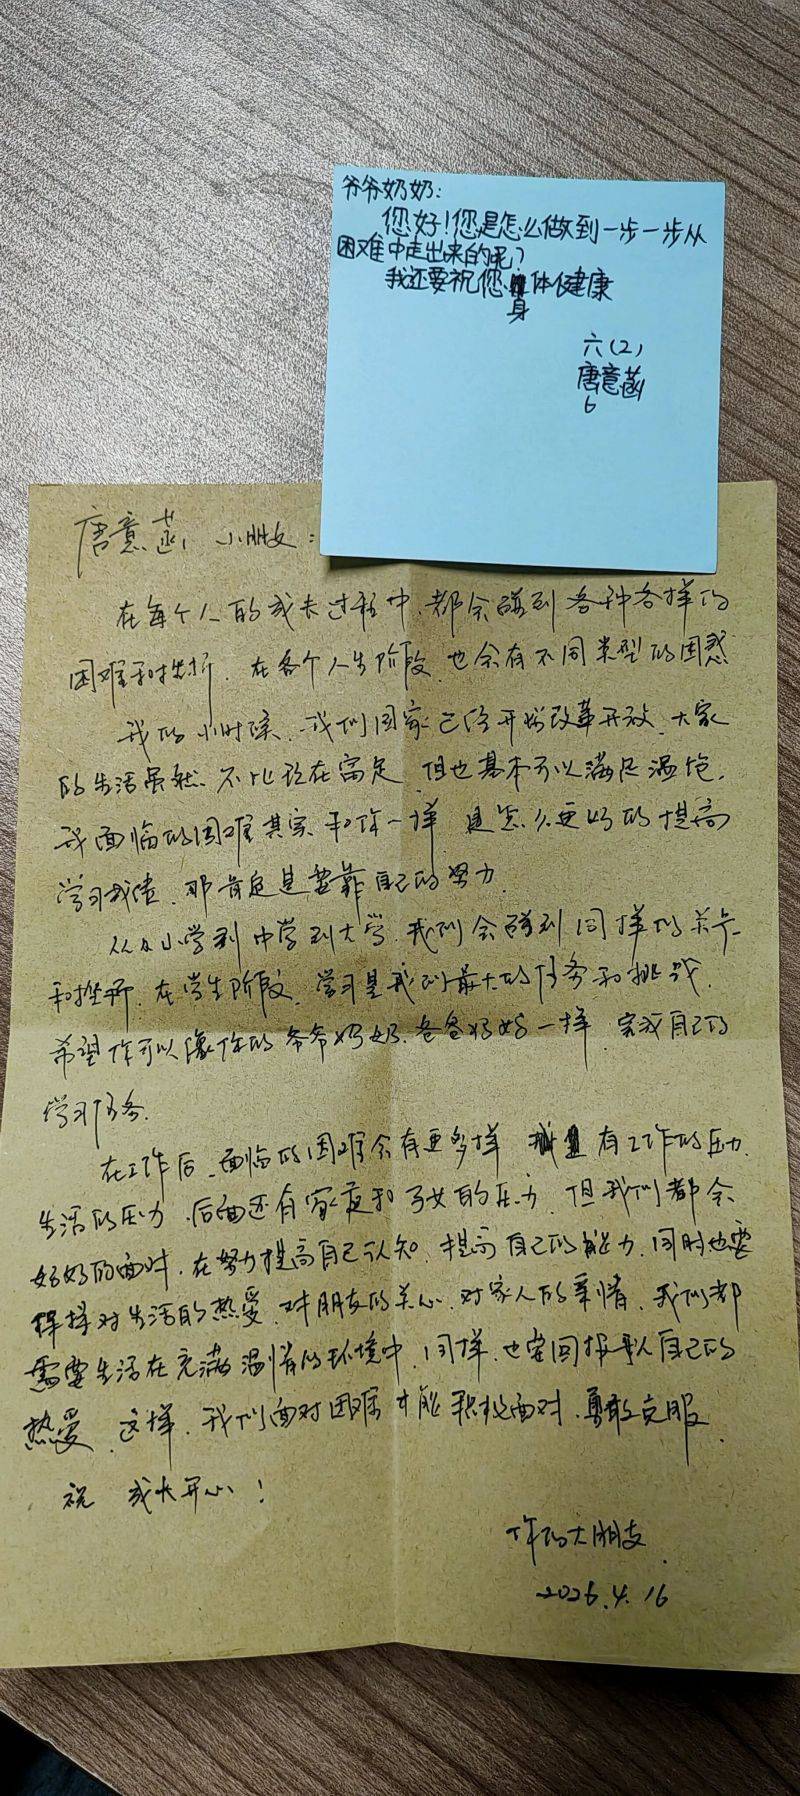 爷爷奶奶：
您好！您是怎么做到一步一步从
困难中走出来的呢？
我还要祝您身体健康
六（2）
唐意菡
6
唐意菡 小朋友：
在每个人的成长过程中，都会碰到各种各样的
困难和挫折，在各个人生阶段，也会有不同类型的困惑
我的小时候，我们国家已经开始改革开放，大家
的生活虽然不比现在富足，但也基本可以满足温饱，
我面临的困难其实和你一样，是怎么更好的提高
学习成绩，那肯定是要靠自己的努力。
从小学到中学到大学，我们会碰到同样的关卡
和挫折，在学生阶段，学习是我们最大的任务和挑战，
希望你可以像你的爷爷奶奶、爸爸妈妈一样，完成自己的
学习任务。
在工作后，面临的困难会有更多样，有工作的压力，
生活的压力，后面还有家庭和子女的压力，但我们都会
好好的面对，在努力提高自己认知，提高自己的能力，同时也要
保持对生活的热爱，对朋友的关心，对家人的亲情，我们都
需要生活在充满温情的环境中，同样，也要回报自己的
热爱，这样，我们面对困难才能积极面对，勇敢克服。
祝 成长开心！
你的大朋友
2026.4.16